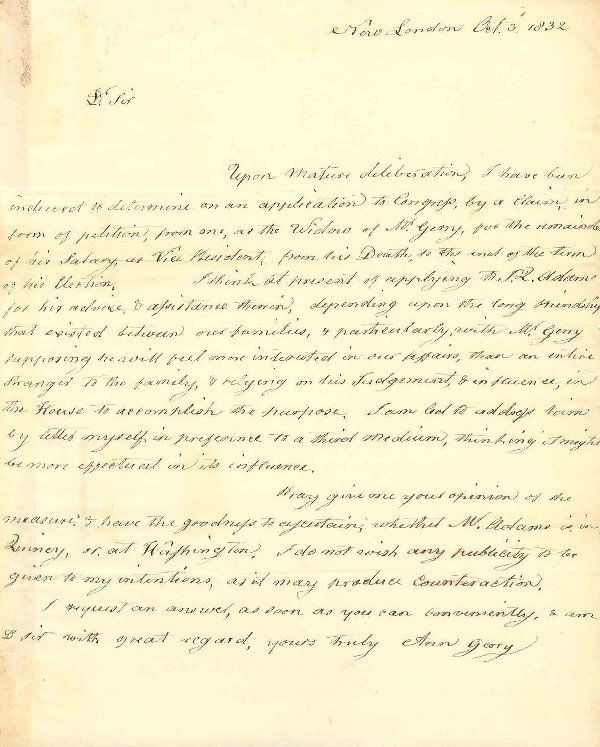 New London Oct. 3 1832
Dr. Sir
Upon mature deliberation, I have been
induced to determine on an application to Congress, by a Claim, in
form of petition, from me, as the Widow of Mr. Gerry, for the remainder
of his Salary, as Vice President, from his Death, to the end of the term
of his Election. I think at present of applying to J. Q. Adams
for his advice, & assistance therein, depending upon the long friendship
that existed between our families, & particularly, with Mr. Gerry
supposing he will feel more interested in our affairs, than an entire
stranger to the family, & relying on his Judgement, & influence, in
the House to accomplish the purpose. I am led to address him
by letter myself, in preference to a third medium, thinking it might
be more effectual in its influence.
Pray give me your opinion of the
measure, & have the goodness to ascertain, whether Mr. Adams is in
Quincy, or, at Washington. I do not wish any publicity to be
given to my intentions, as it may produce Counteraction.
I request an answer, as soon as you can conveniently, & am
Dr. Sir with great regard, yours truly Ann Gerry